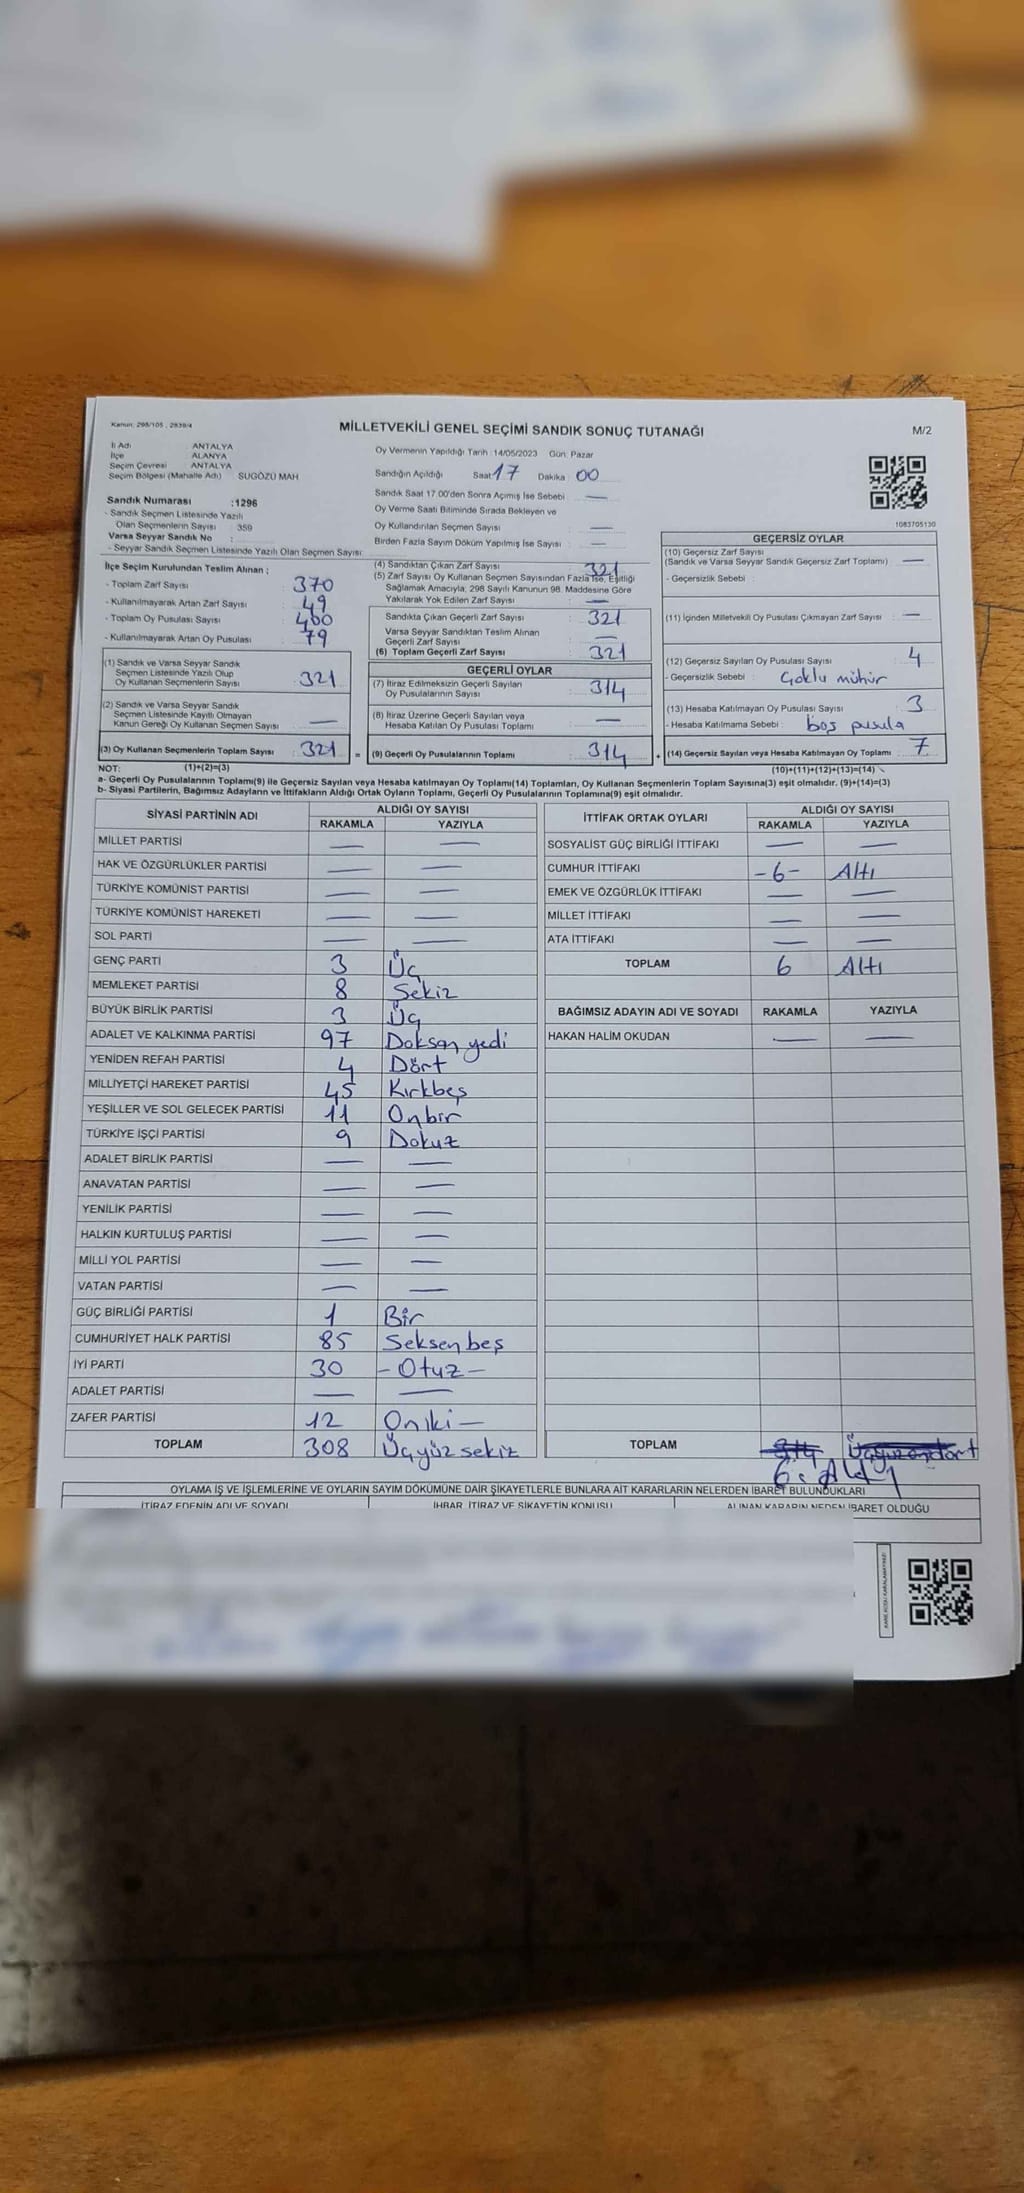 Kanun: 298/105 , 2839/4
MİLLETVEKİLİ GENEL SEÇİMİ SANDIK SONUÇ TUTANAĞI
M/2
İl Adı ANTALYA
İlçe ALANYA
Seçim Çevresi ANTALYA
Seçim Bölgesi (Mahalle Adı) SUGÖZÜ MAH
Sandık Numarası :1296
- Sandık Seçmen Listesinde Yazılı
Olan Seçmenlerin Sayısı : 359
Varsa Seyyar Sandık No :
- Seyyar Sandık Seçmen Listesinde Yazılı Olan Seçmen Sayısı:
Oy Vermenin Yapıldığı Tarih :14/05/2023 Gün: Pazar
Sandığın Açıldığı Saat 17 Dakika : 00
Sandık Saat 17.00'den Sonra Açımış İse Sebebi : —
Oy Verme Saati Bitiminde Sırada Bekleyen ve
Oy Kullandırılan Seçmen Sayısı : —
Birden Fazla Sayım Döküm Yapılmış İse Sayısı : —
1083705130
İlçe Seçim Kurulundan Teslim Alınan ;
- Toplam Zarf Sayısı : 370
- Kullanılmayarak Artan Zarf Sayısı : 49
- Toplam Oy Pusulası Sayısı : 400
- Kullanılmayarak Artan Oy Pusulası : 79
(1) Sandık ve Varsa Seyyar Sandık
Seçmen Listesinde Yazılı Olup
Oy Kullanan Seçmenlerin Sayısı : 321
(2) Sandık ve Varsa Seyyar Sandık
Seçmen Listesinde Kayıtlı Olmayan
Kanun Gereği Oy Kullanan Seçmen Sayısı : —
(3) Oy Kullanan Seçmenlerin Toplam Sayısı : 321 =
(4) Sandıktan Çıkan Zarf Sayısı : 321
(5) Zarf Sayısı Oy Kullanan Seçmen Sayısından Fazla İse, Eşitliği
Sağlamak Amacıyla; 298 Sayılı Kanunun 98. Maddesine Göre
Yakılarak Yok Edilen Zarf Sayısı : —
Sandıkta Çıkan Geçerli Zarf Sayısı : 321
Varsa Seyyar Sandıktan Teslim Alınan
Geçerli Zarf Sayısı : —
(6) Toplam Geçerli Zarf Sayısı : 321
GEÇERLİ OYLAR
(7) İtiraz Edilmeksizin Geçerli Sayılan
Oy Pusulalarının Sayısı : 314
(8) İtiraz Üzerine Geçerli Sayılan veya
Hesaba Katılan Oy Pusulası Toplamı : —
(9) Geçerli Oy Pusulalarının Toplamı : 314 +
GEÇERSİZ OYLAR
(10) Geçersiz Zarf Sayısı
(Sandık ve Varsa Seyyar Sandık Geçersiz Zarf Toplamı) : —
- Geçersizlik Sebebi :
(11) İçinden Milletvekili Oy Pusulası Çıkmayan Zarf Sayısı : —
(12) Geçersiz Sayılan Oy Pusulası Sayısı : 4
- Geçersizlik Sebebi : Çoklu mühür
(13) Hesaba Katılmayan Oy Pusulası Sayısı : 3
- Hesaba Katılmama Sebebi : boş pusula
(14) Geçersiz Sayılan veya Hesaba Katılmayan Oy Toplamı : 7
NOT: (1)+(2)=(3) (10)+(11)+(12)+(13)=(14)
a- Geçerli Oy Pusulalarının Toplamı(9) ile Geçersiz Sayılan veya Hesaba katılmayan Oy Toplamı(14) Toplamları, Oy Kullanan Seçmenlerin Toplam Sayısına(3) eşit olmalıdır. (9)+(14)=(3)
b- Siyasi Partilerin, Bağımsız Adayların ve İttifakların Aldığı Ortak Oyların Toplamı, Geçerli Oy Pusulalarının Toplamına(9) eşit olmalıdır.
SİYASİ PARTİNİN ADI ALDIĞI OY SAYISI
RAKAMLA YAZIYLA
MİLLET PARTİSİ — —
HAK VE ÖZGÜRLÜKLER PARTİSİ — —
TÜRKİYE KOMÜNİST PARTİSİ — —
TÜRKİYE KOMÜNİST HAREKETİ — —
SOL PARTİ — —
GENÇ PARTİ 3 Üç
MEMLEKET PARTİSİ 8 Sekiz
BÜYÜK BİRLİK PARTİSİ 3 Üç
ADALET VE KALKINMA PARTİSİ 97 Doksan yedi
YENİDEN REFAH PARTİSİ 4 Dört
MİLLİYETÇİ HAREKET PARTİSİ 45 Kırkbeş
YEŞİLLER VE SOL GELECEK PARTİSİ 11 Onbir
TÜRKİYE İŞÇİ PARTİSİ 9 Dokuz
ADALET BİRLİK PARTİSİ — —
ANAVATAN PARTİSİ — —
YENİLİK PARTİSİ — —
HALKIN KURTULUŞ PARTİSİ — —
MİLLİ YOL PARTİSİ — —
VATAN PARTİSİ — —
GÜÇ BİRLİĞİ PARTİSİ 1 Bir
CUMHURİYET HALK PARTİSİ 85 Seksen beş
İYİ PARTİ 30 -Otuz-
ADALET PARTİSİ — —
ZAFER PARTİSİ 12 Oniki —
TOPLAM 308 Üçyüz sekiz
İTTİFAK ORTAK OYLARI ALDIĞI OY SAYISI
RAKAMLA YAZIYLA
SOSYALİST GÜÇ BİRLİĞİ İTTİFAKI — —
CUMHUR İTTİFAKI -6- Altı
EMEK VE ÖZGÜRLÜK İTTİFAKI — —
MİLLET İTTİFAKI — —
ATA İTTİFAKI — —
TOPLAM 6 Altı
BAĞIMSIZ ADAYIN ADI VE SOYADI RAKAMLA YAZIYLA
HAKAN HALİM OKUDAN — —
TOPLAM 314 Üçyüzondört
6. Altı
OYLAMA İŞ VE İŞLEMLERİNE VE OYLARIN SAYIM DÖKÜMÜNE DAİR ŞİKAYETLERLE BUNLARA AİT KARARLARIN NELERDEN İBARET BULUNDUKLARI
İTİRAZ EDENİN ADI VE SOYADI İHBAR, İTİRAZ VE ŞİKAYETİN KONUSU ALINAN KARARIN NEDEN İBARET OLDUĞU